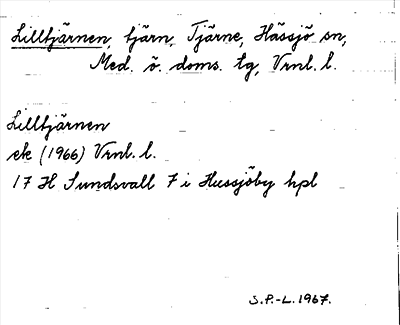 Lilltjärnen, tjärn, Tjärne, Hässjö sn,
Med. ö. doms. tg, Vrnl. l.
Lilltjärnen
ek (1966) Vrnl. l.
17 H Sundsvall 7 i Hussjöby hpl
S.P.-L. 1967.